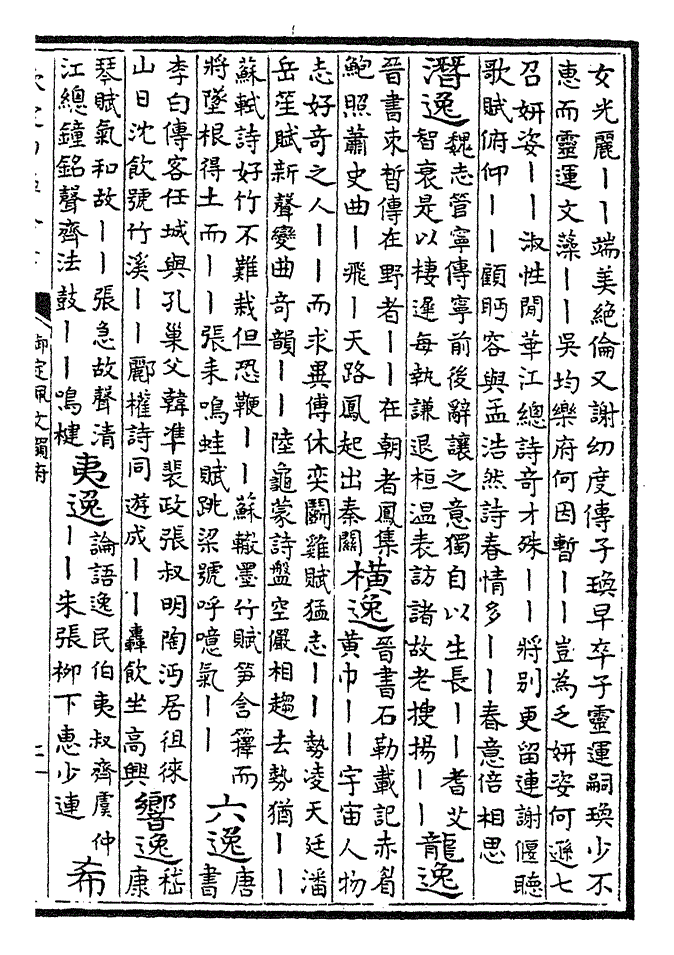 女光麗丨丨端美絶倫又謝幼度傳子瑍早卒子靈運嗣瑍少不
惠而靈運文藻丨丨吳均樂府何因暫丨丨豈為乏妍姿何遜七
召妍姿丨丨淑性閒華江總詩奇才殊丨丨將别更留連謝偃聽
歌賦俯仰丨丨顧眄容與孟浩然詩春情多丨丨春意倍相思
潛逸
魏志管寧傳寧前後辭讓之意獨自以生長丨丨耆艾
智衰是以棲遲每執謙退桓温表訪諸故老搜揚丨丨
龍逸
晉書束晳傳在野者丨丨在朝者鳳集
鮑照蕭史曲丨飛丨天路鳳起出秦關
橫逸
晉書石勒載記赤眉
黄巾丨丨宇宙人物
志好奇之人丨丨而求異傅休奕鬭雞賦猛志丨丨勢凌天廷潘
岳笙賦新聲變曲奇韻丨丨陸龜蒙詩盤空儼相趨去勢猶丨丨
蘇軾詩好竹不難栽但恐鞭丨丨蘇轍墨竹賦笋含籜而
將墜根得土而丨丨張耒鳴蛙賦跳梁號呼噫氣丨丨
六逸
唐
書
李白傳客任城與孔巢父韓凖裴政張叔明陶沔居徂徠
山日沈飲號竹溪丨丨酈權詩同遊成丨丨轟飲坐高興
響逸
嵇
康
琴賦氣和故丨丨張急故聲清
江總鐘銘聲齊法鼓丨丨鳴槤
夷逸
論語逸民伯夷叔齊虞仲
丨丨朱張柳下惠少連
希
御定佩文韻府